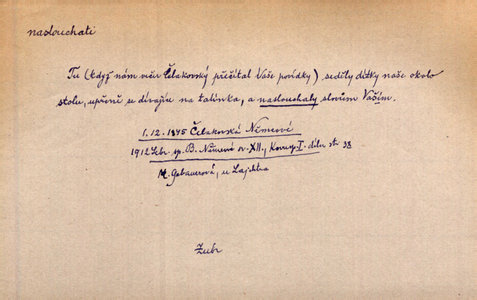 naslouchati
Tu (když nám Čelakovský přečítal Vaše povídky) seděly dítky naše okolo
stolu, upřeně se dívajíce na tatínka, a naslouchaly slovům Vaším.
1. 12. 1845 Čelakovská Němcové
1912 Sebr. sp. B. Němcové sv. XII., Koresp. I. dílu str. 38
M. Gebauerová, u Laichtra
Zubr